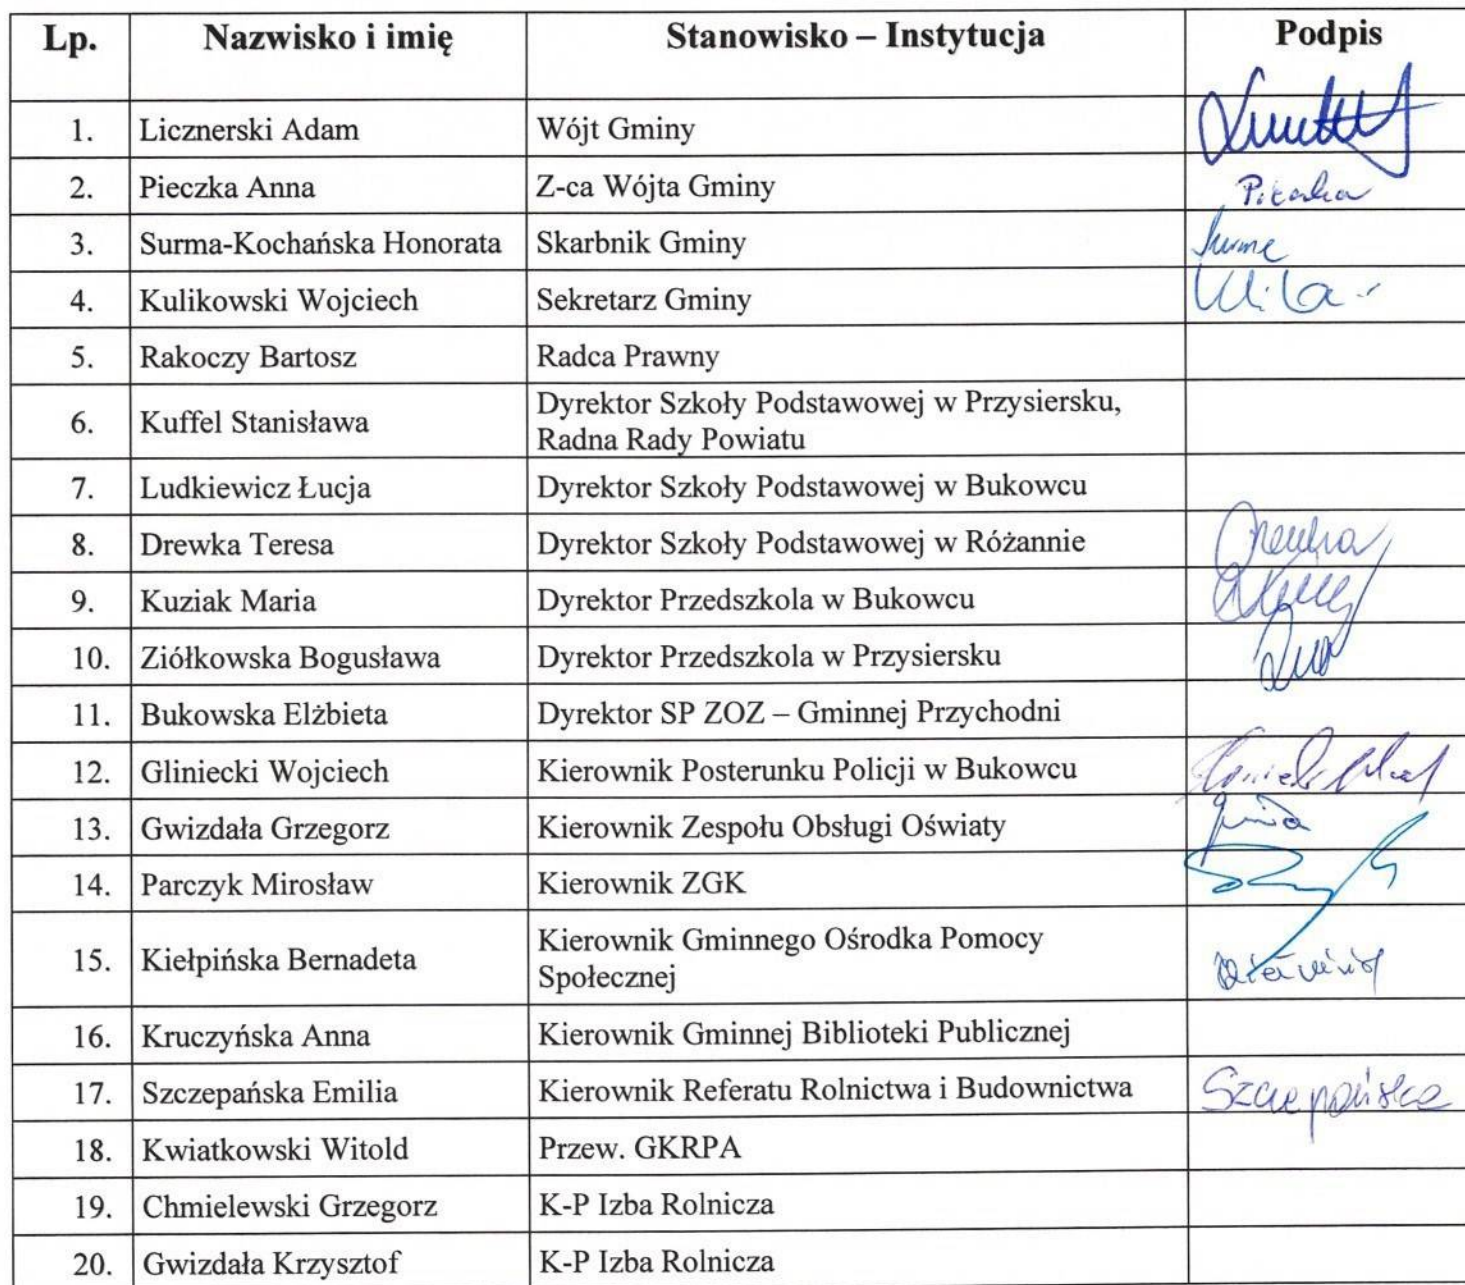 Lp. Nazwisko i imię Stanowisko – Instytucja Podpis
1. Licznerski Adam Wójt Gminy
2. Pieczka Anna Z-ca Wójta Gminy
3. Surma-Kochańska Honorata Skarbnik Gminy
4. Kulikowski Wojciech Sekretarz Gminy
5. Rakoczy Bartosz Radca Prawny
6. Kuffel Stanisława Dyrektor Szkoły Podstawowej w Przysiersku,
Radna Rady Powiatu
7. Ludkiewicz Łucja Dyrektor Szkoły Podstawowej w Bukowcu
8. Drewka Teresa Dyrektor Szkoły Podstawowej w Różannie
9. Kuziak Maria Dyrektor Przedszkola w Bukowcu
10. Ziółkowska Bogusława Dyrektor Przedszkola w Przysiersku
11. Bukowska Elżbieta Dyrektor SP ZOZ – Gminnej Przychodni
12. Gliniecki Wojciech Kierownik Posterunku Policji w Bukowcu
13. Gwizdała Grzegorz Kierownik Zespołu Obsługi Oświaty
14. Parczyk Mirosław Kierownik ZGK
15. Kiełpińska Bernadeta Kierownik Gminnego Ośrodka Pomocy
Społecznej
16. Kruczyńska Anna Kierownik Gminnej Biblioteki Publicznej
17. Szczepańska Emilia Kierownik Referatu Rolnictwa i Budownictwa Szczepańska
18. Kwiatkowski Witold Przew. GKRPA
19. Chmielewski Grzegorz K-P Izba Rolnicza
20. Gwizdała Krzysztof K-P Izba Rolnicza